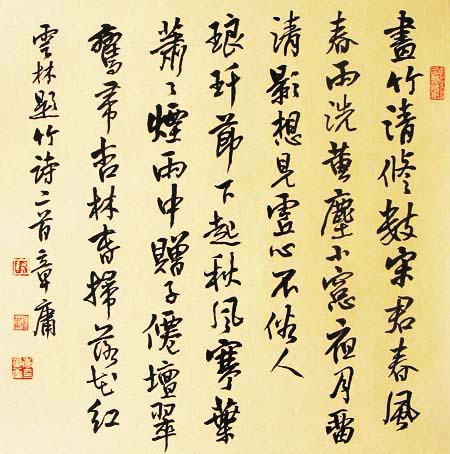 畫竹清修數宋君春風
春雨洗黃塵小窻夜月留
清影想見虛心不俗人
琅玕節下起秋風寒葉
蕭〻煙雨中贈子僊壇翠
鸞帚杏林春掃落花紅
雲林題竹詩二首章庸